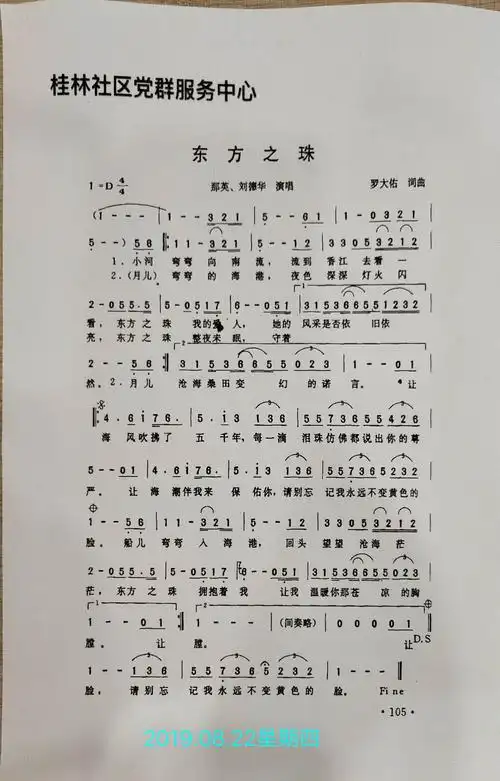 桂林社区党群服务中心
东方之珠
1=D 4/4 那英、刘德华 演唱 罗大佑 词曲
(1 - - - | 1 - - 3 2 1 | 5 - - 6 1 | 1 - 0 3 2 1 |
5 - - ) 5 6 ‖: 1 1 - - 3 2 1 | 5 - - 1 2 | 3 3 0 5 3 2 1 2 |
1．小河 弯弯 向南 流， 流到 香江 去看 一
2．(月儿) 弯弯 的海 港，夜色 深深 灯火 闪
2 - 0 5 5. 5 | 5 - 0 5 1 7 | 6 - - 0 5 1 | 3 1 5 3 6 6 5 5 1 2 3 2 |
看，东方之珠 我的爱人，她的 风采是否依 旧依
亮，东方之珠 整夜未眠，守着
2 - - 5 6 :‖ 3 1 5 3 6 6 5 5 0 2 3 | 1 - - 0 1 |
然。2．月儿 沧海桑田变 幻的诺言。 让
4 . 6 1 7 6. | 5 . 1 3 0 1 | 5 5 7 3 6 5 5 4 2 6 |
海 风吹拂了 五 千年，每一滴 泪珠仿佛都说出你的尊
5 - - 0 1 | 4 . 6 1 7 6. | 5 . 5 1 3 6 | 5 5 7 3 6 5 5 2 3 2 |
严。 让 海 潮伴我来 保 佑你，请别忘 记我永远不变黄色的
1 - - 5 6 | 1 1 - - 3 2 1 | 5 - - 1 2 | 3 3 0 5 3 2 1 2 |
脸。 船儿 弯弯 入海 港，回头 望望 沧海 茫
2 - 0 5 5. 5 | 5 - 0 5 1 7 | 6 - - 0 5 1 | 3 1 5 3 6 6 5 5 0 2 3 |
茫，东方之珠 拥抱着我 让我 温暖你那苍 凉的胸
1 - - 0 1 :‖ 1 - - - | (间奏略) | 0 0 0 0 1 ‖
膛。 让 膛。 让 D.S
1 - - 1 3 6 | 5 5 7 3 6 5 5 2 3 2 | 1 - - - ‖
脸，请别忘 记我永远不变黄色的 脸。 Fine
·105·
2019.08.22星期四